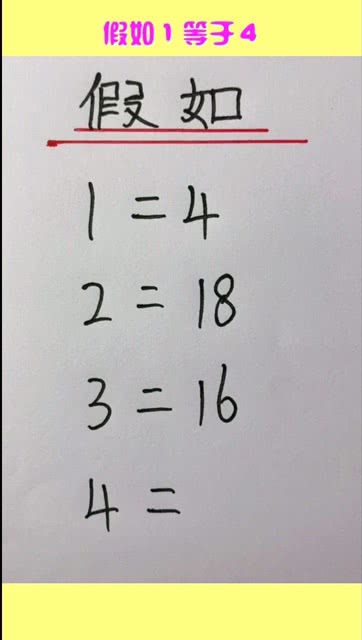 假如1等于4
假如
1=4
2=18
3=16
4=